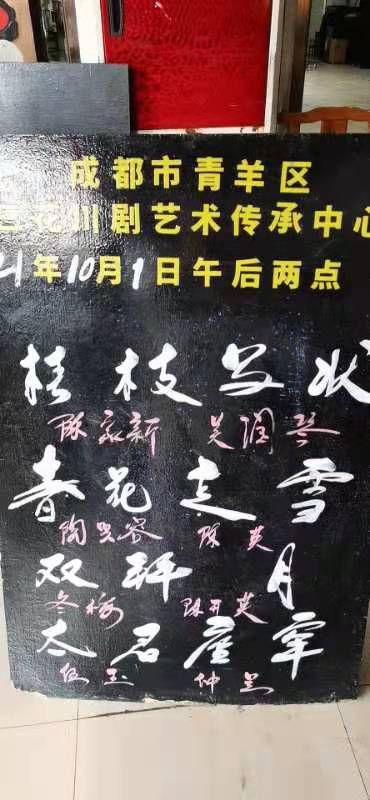 成都市青羊区
花川剧艺术传承中心
21年10月1日午后两点
桂枝写状
陈家新 吴润琴
春花走雪
陶兴容 陈英
双拜月
冬梅 陈开英
太君座宰